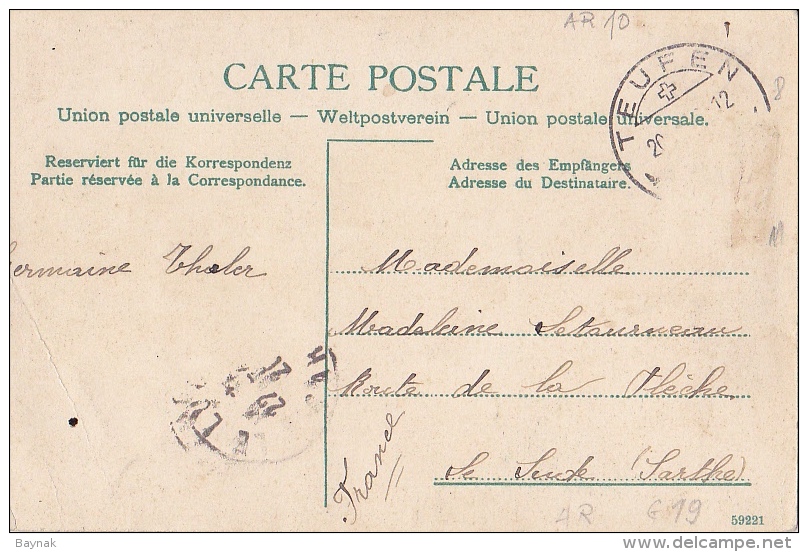 AR 10
CARTE POSTALE
Union postale universelle — Weltpostverein — Union postale universale.
TEUFEN
12
Reserviert für die Korrespondenz
Partie réservée à la Correspondance.
Adresse des Empfängers
Adresse du Destinataire.
Germaine Thaler
Mademoiselle
Madeleine Letourneau
Route de la Flèche
Le Lude (Sarthe)
France
AR G 19
59221
Baynak
www.delcampe.net